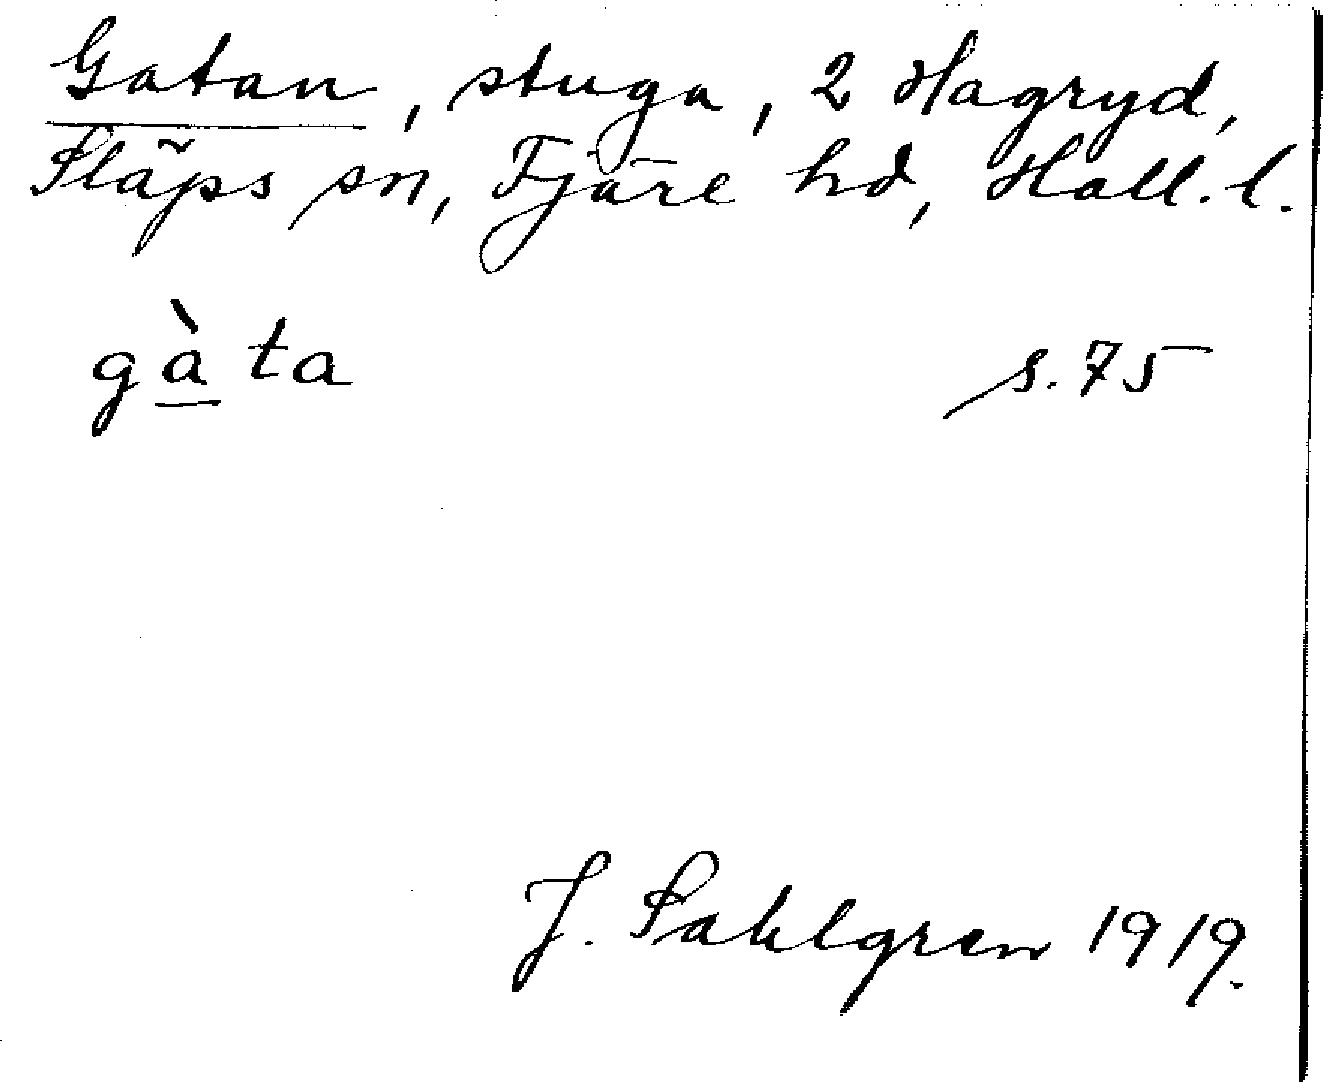 Gatan, stuga, 2 Hagryd,
Släps sn, Fjäre hd, Hall. l.
gà̱ta s. 75
J. Sahlgren 1919.